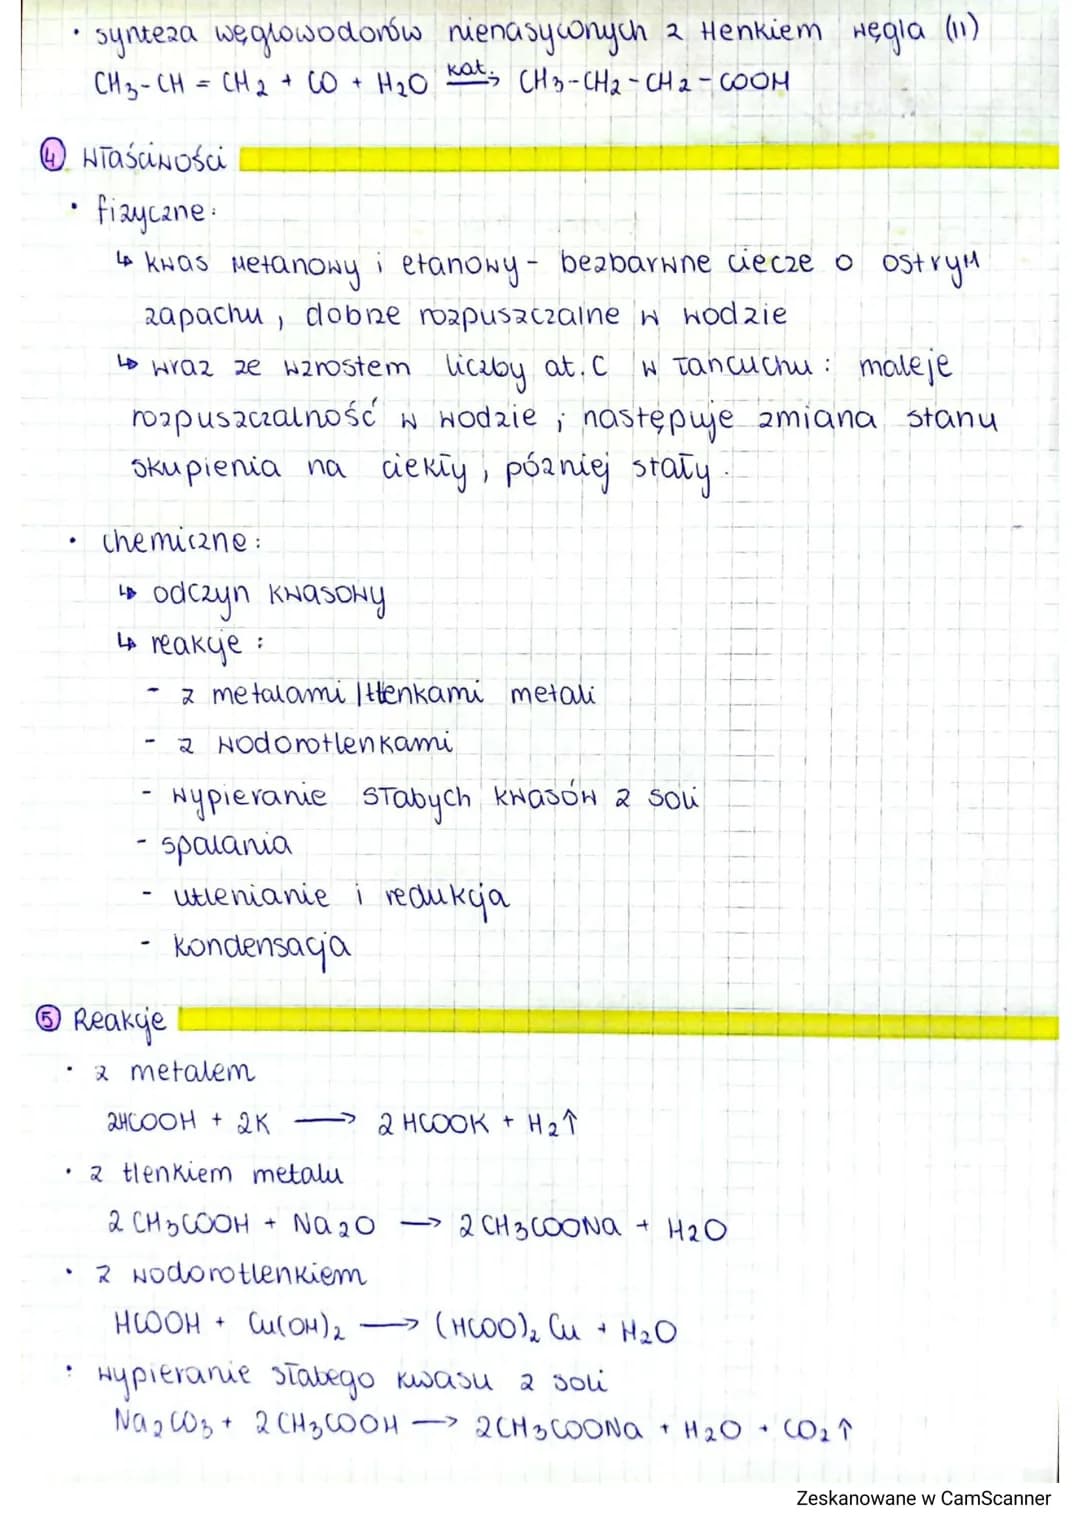 • synteza węglowodorów nienasyconych z tlenkiem węgla (II)
CH3-CH = CH2 + CO + H2O kat.→ CH3-CH2-CH2-COOH
④ właściwości
• fizyczne:
↳ kwas metanowy i etanowy - bezbarwne ciecze o ostrym
zapachu, dobrze rozpuszczalne w wodzie
↳ wraz ze wzrostem liczby at. C w łancuchu: maleje
rozpuszczalność w wodzie ; następuje zmiana stanu
skupienia na ciekły, pózniej stały.
• chemiczne:
↳ odczyn kwasowy
↳ reakcje:
- z metalami / tlenkami metali
- z wodorotlenkami
- wypieranie słabych kwasów z soli
- spalania
- utlenianie i redukcja
- kondensacja
⑤ Reakcje
• z metalem
2HCOOH + 2K → 2HCOOK + H2↑
• z tlenkiem metalu
2CH3COOH + Na2O → 2CH3COONa + H2O
• z wodorotlenkiem
HCOOH + Cu(OH)2 → (HCOO)2 Cu + H2O
• wypieranie słabego kwasu z soli
Na2CO3 + 2CH3COOH → 2CH3COONa + H2O + CO2↑
Zeskanowane w CamScanner